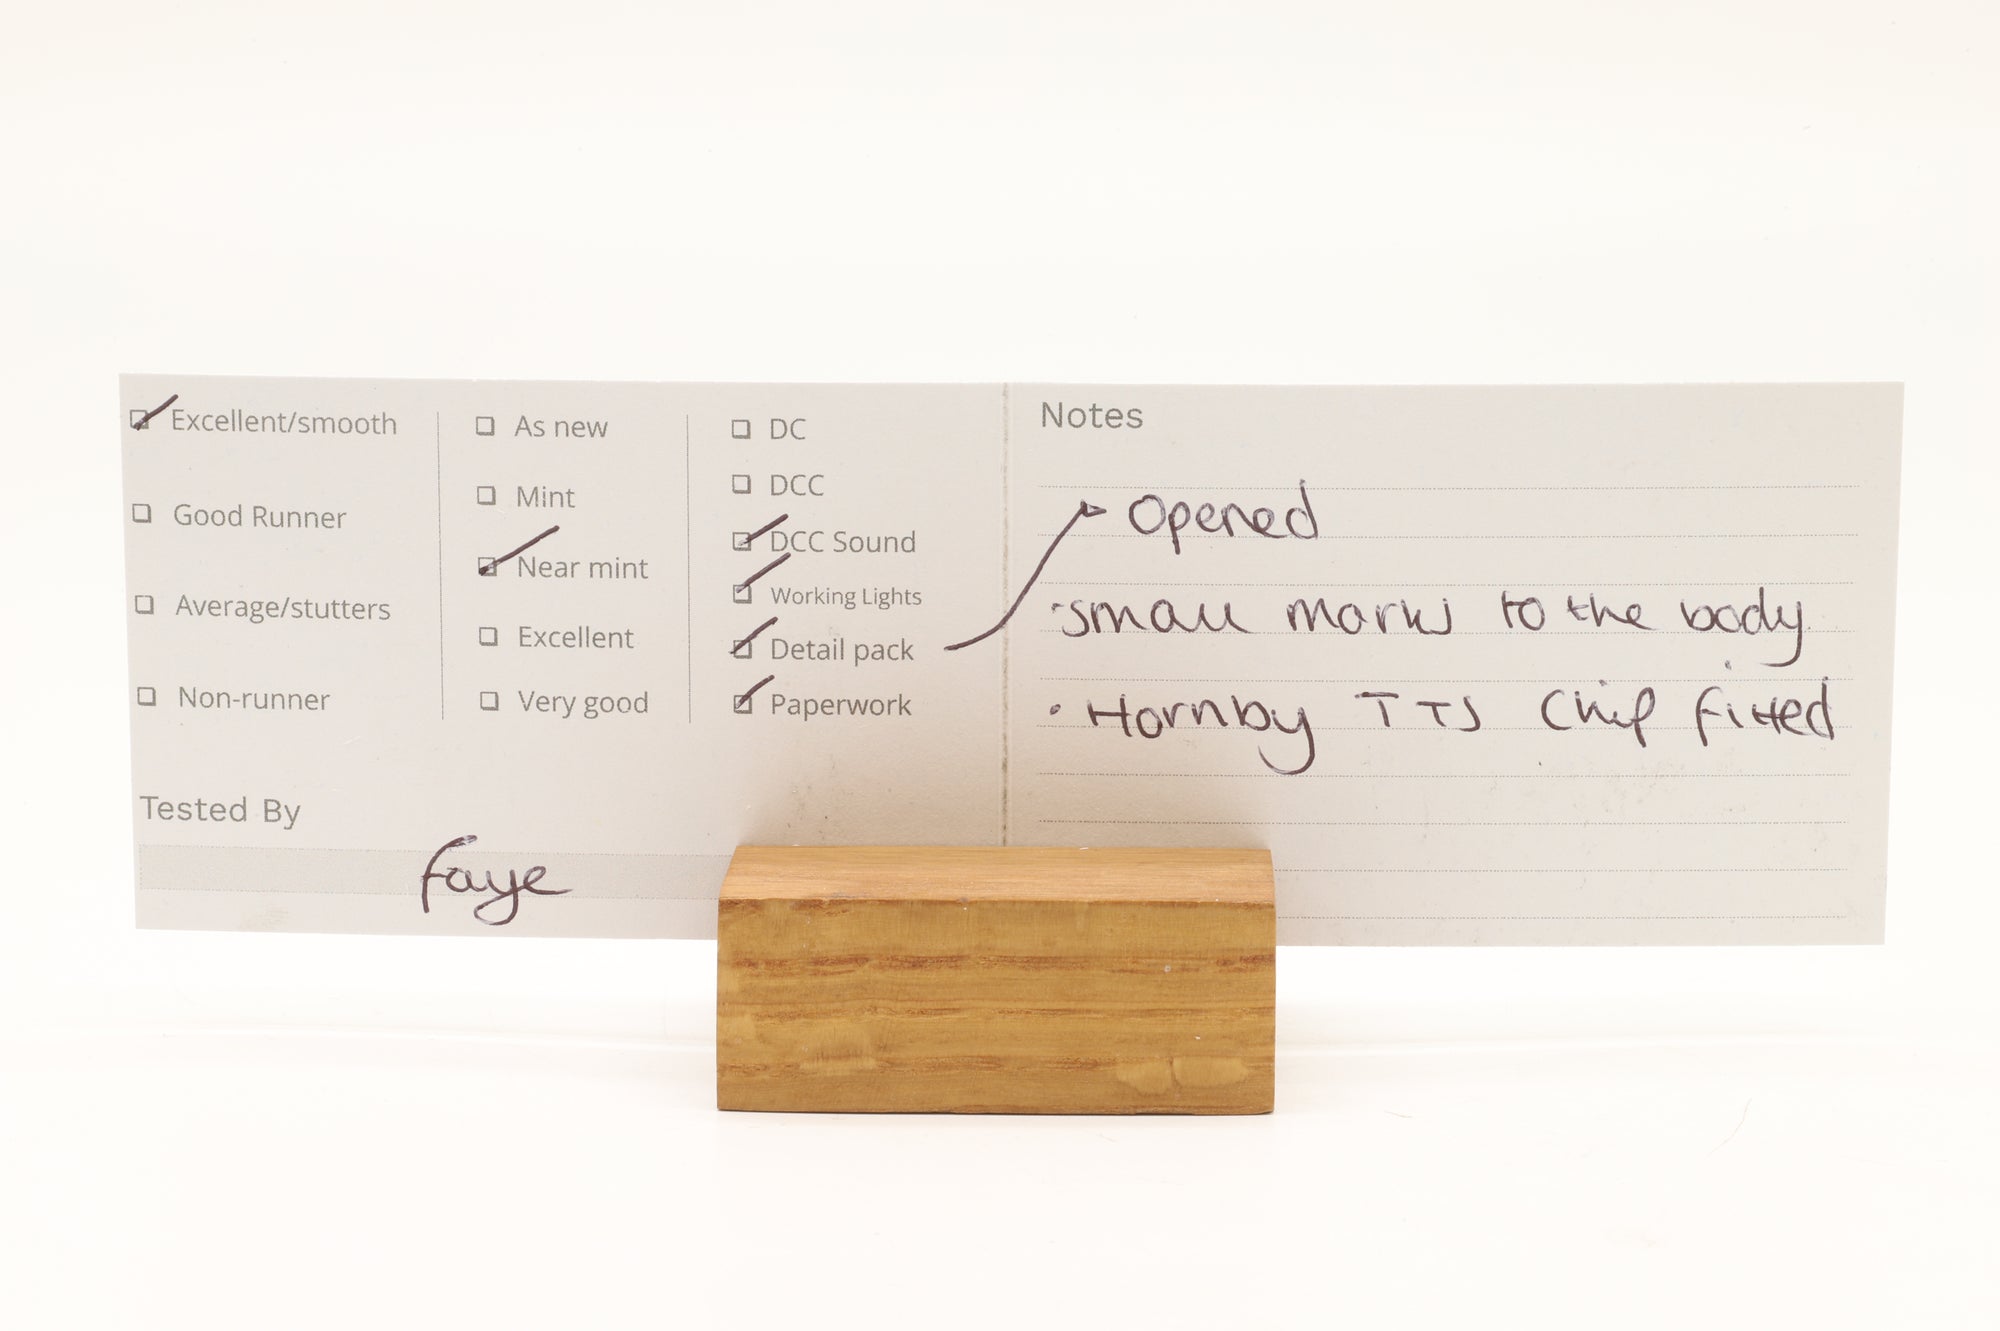 Excellent/smooth
Good Runner
Average/stutters
Non-runner
As new
Mint
Near mint
Excellent
Very good
DC
DCC
DCC Sound
Working Lights
Detail pack
Paperwork
Tested By
Faye
Notes
Opened
·small marks to the body
· Hornby TTS Chip fitted